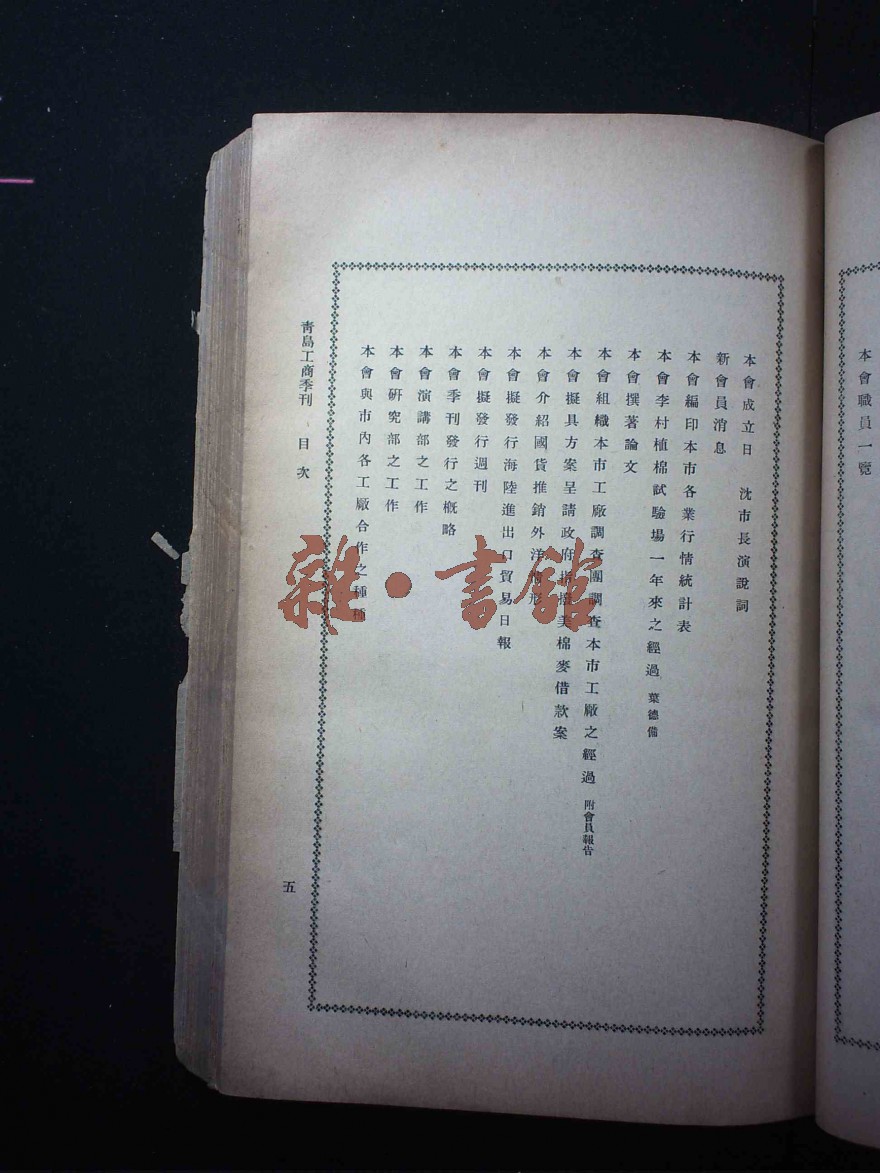 本會職員一覽
本會成立日　沈市長演說詞
新會員消息
本會編印本市各業行情統計表
本會李村植棉試驗場一年來之經過　葉德備
本會撰著論文
本會組織本市工廠調查團調查本市工廠之經過　附會員報告
本會擬具方案呈請政府指撥美棉麥借款案
本會介紹國貨推銷外洋情形
本會擬發行海陸進出口貿易日報
本會擬發行週刊
本會季刊發行之概略
本會演講部之工作
本會研究部之工作
本會與市內各工廠合作之種種
青島工商季刊　目次
五
雜·書館